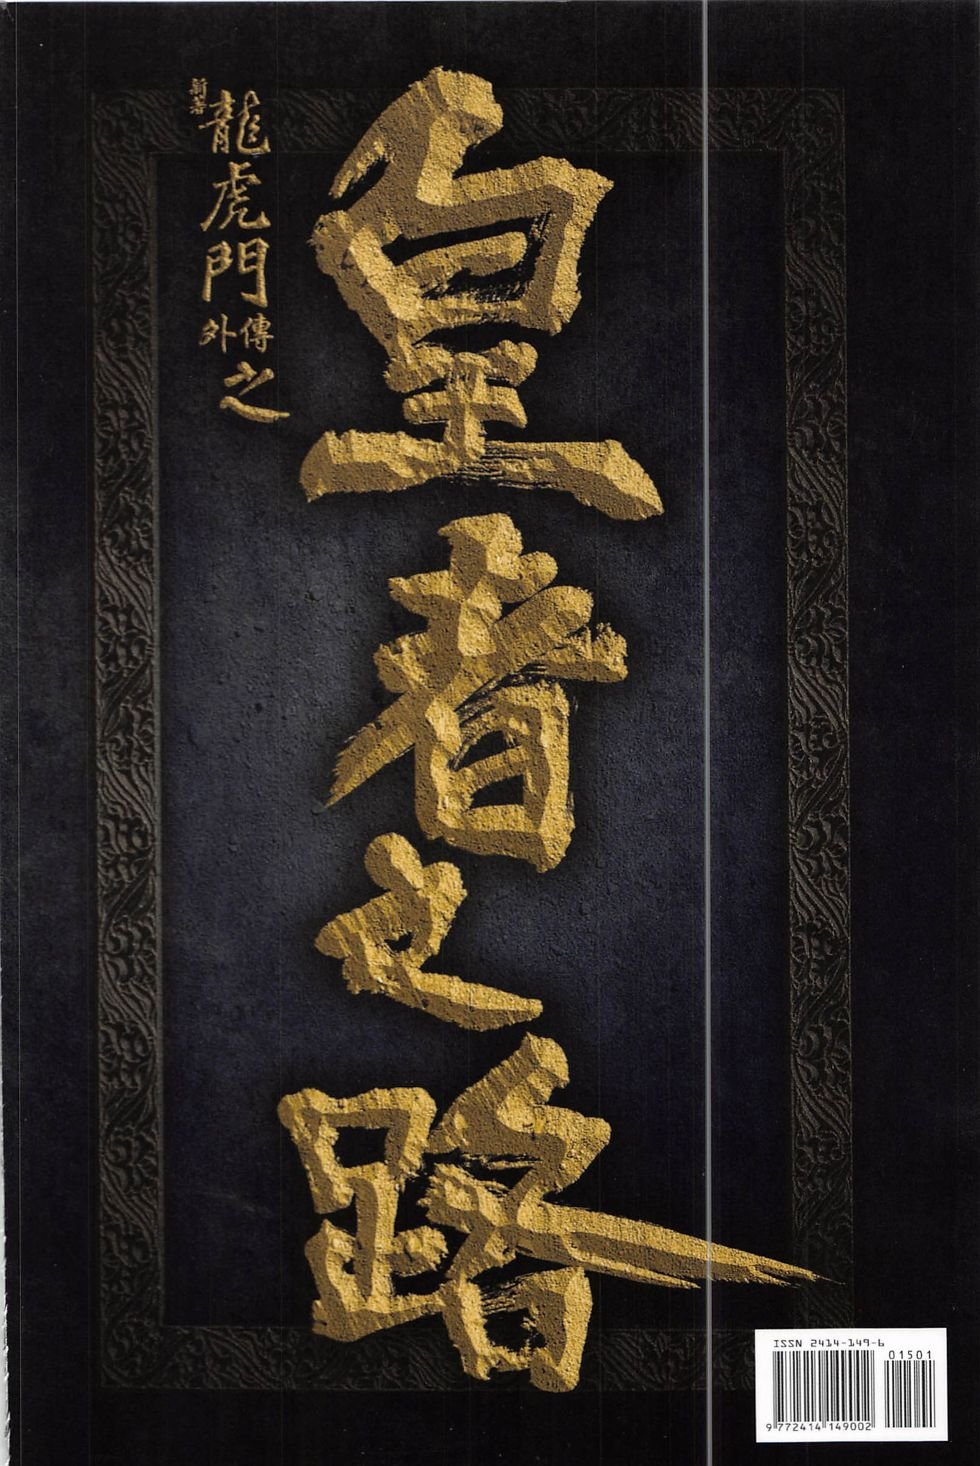 新著
龍虎門
外傳
之
皇者之路
ISSN 2414-149-6
01501
9 772414 149002